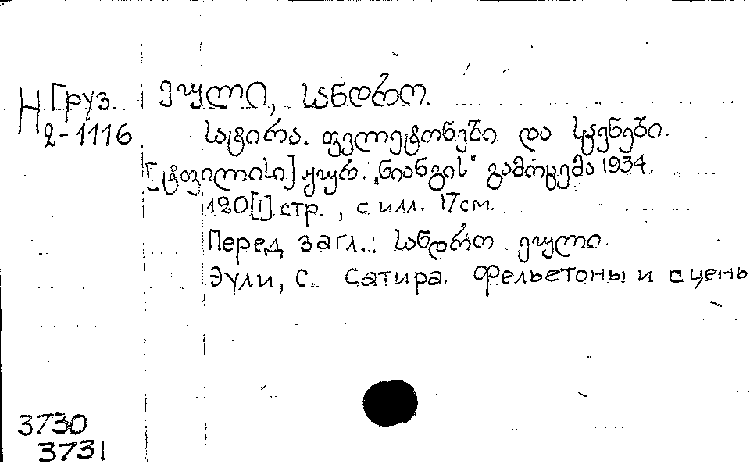 Н Груз. ეული, სანდრო.
2-1116 სატირა. ფელეტონები და სცენები.
[ტფილისი] ჟურ. „ნიანგის" გამოცემა 1934.
120[1] стр., с илл. 17см.
Перед загл.: სანდრო ეული.
Эули, С. Сатира. Фельетоны и сцены
3730
3731